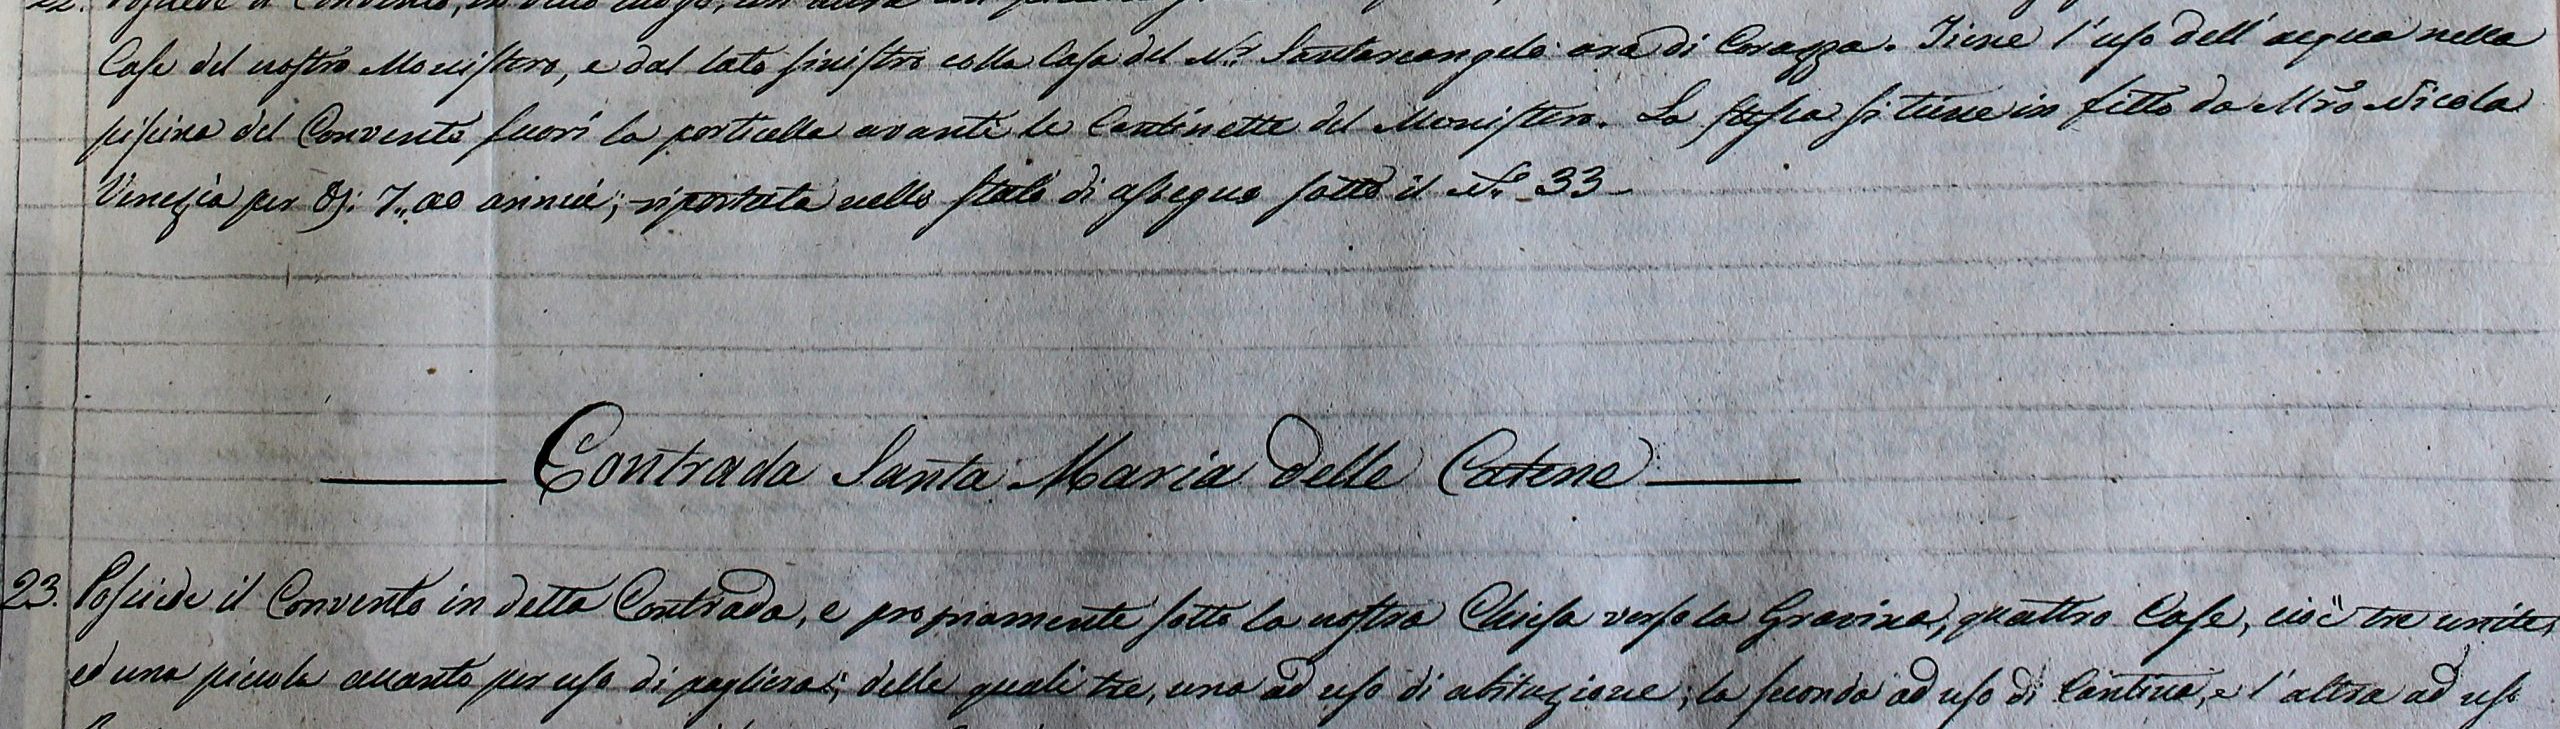 22. Possiede il Convento, in detto luogo, un'altra
Case del nostro Monistero, e dal lato sinistro colla Casa del N.r Santarcangelo ora di Corazza. Tiene l'uso dell'acqua nella
piscina del Convento fuori la porticella avanti le Cantinette del Monistero. La stessa si tiene in fitto da M.ro Nicola
Venezia per D.i 7,,00 annui; riportata nello stato di assegno sotto il N.o 33
Contrada Santa Maria delle Catene
23. Possiede il Convento in detta Contrada, e propriamente sotto la nostra Chiesa verso la Gravina, quattro Case, cioè tre unite,
ed una piccola accanto per uso di pagliera; delle quali tre, una ad uso di abitazione, la seconda ad uso di Cantina, e l'altra ad uso